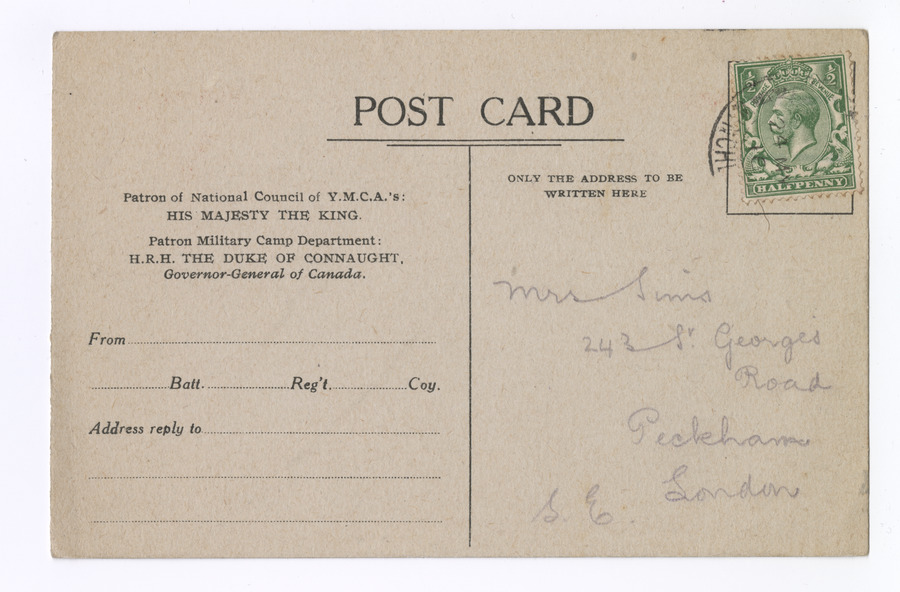 POST CARD
Patron of National Council of Y.M.C.A.'s:
HIS MAJESTY THE KING.
Patron Military Camp Department:
H.R.H. THE DUKE OF CONNAUGHT,
Governor-General of Canada.
From
Batt. Reg't. Coy.
Address reply to
ONLY THE ADDRESS TO BE
WRITTEN HERE
½ ½
POSTAGE REVENUE
HALFPENNY
Mrs Sims
243 St Georges
Road
Peckham
London
S. E.